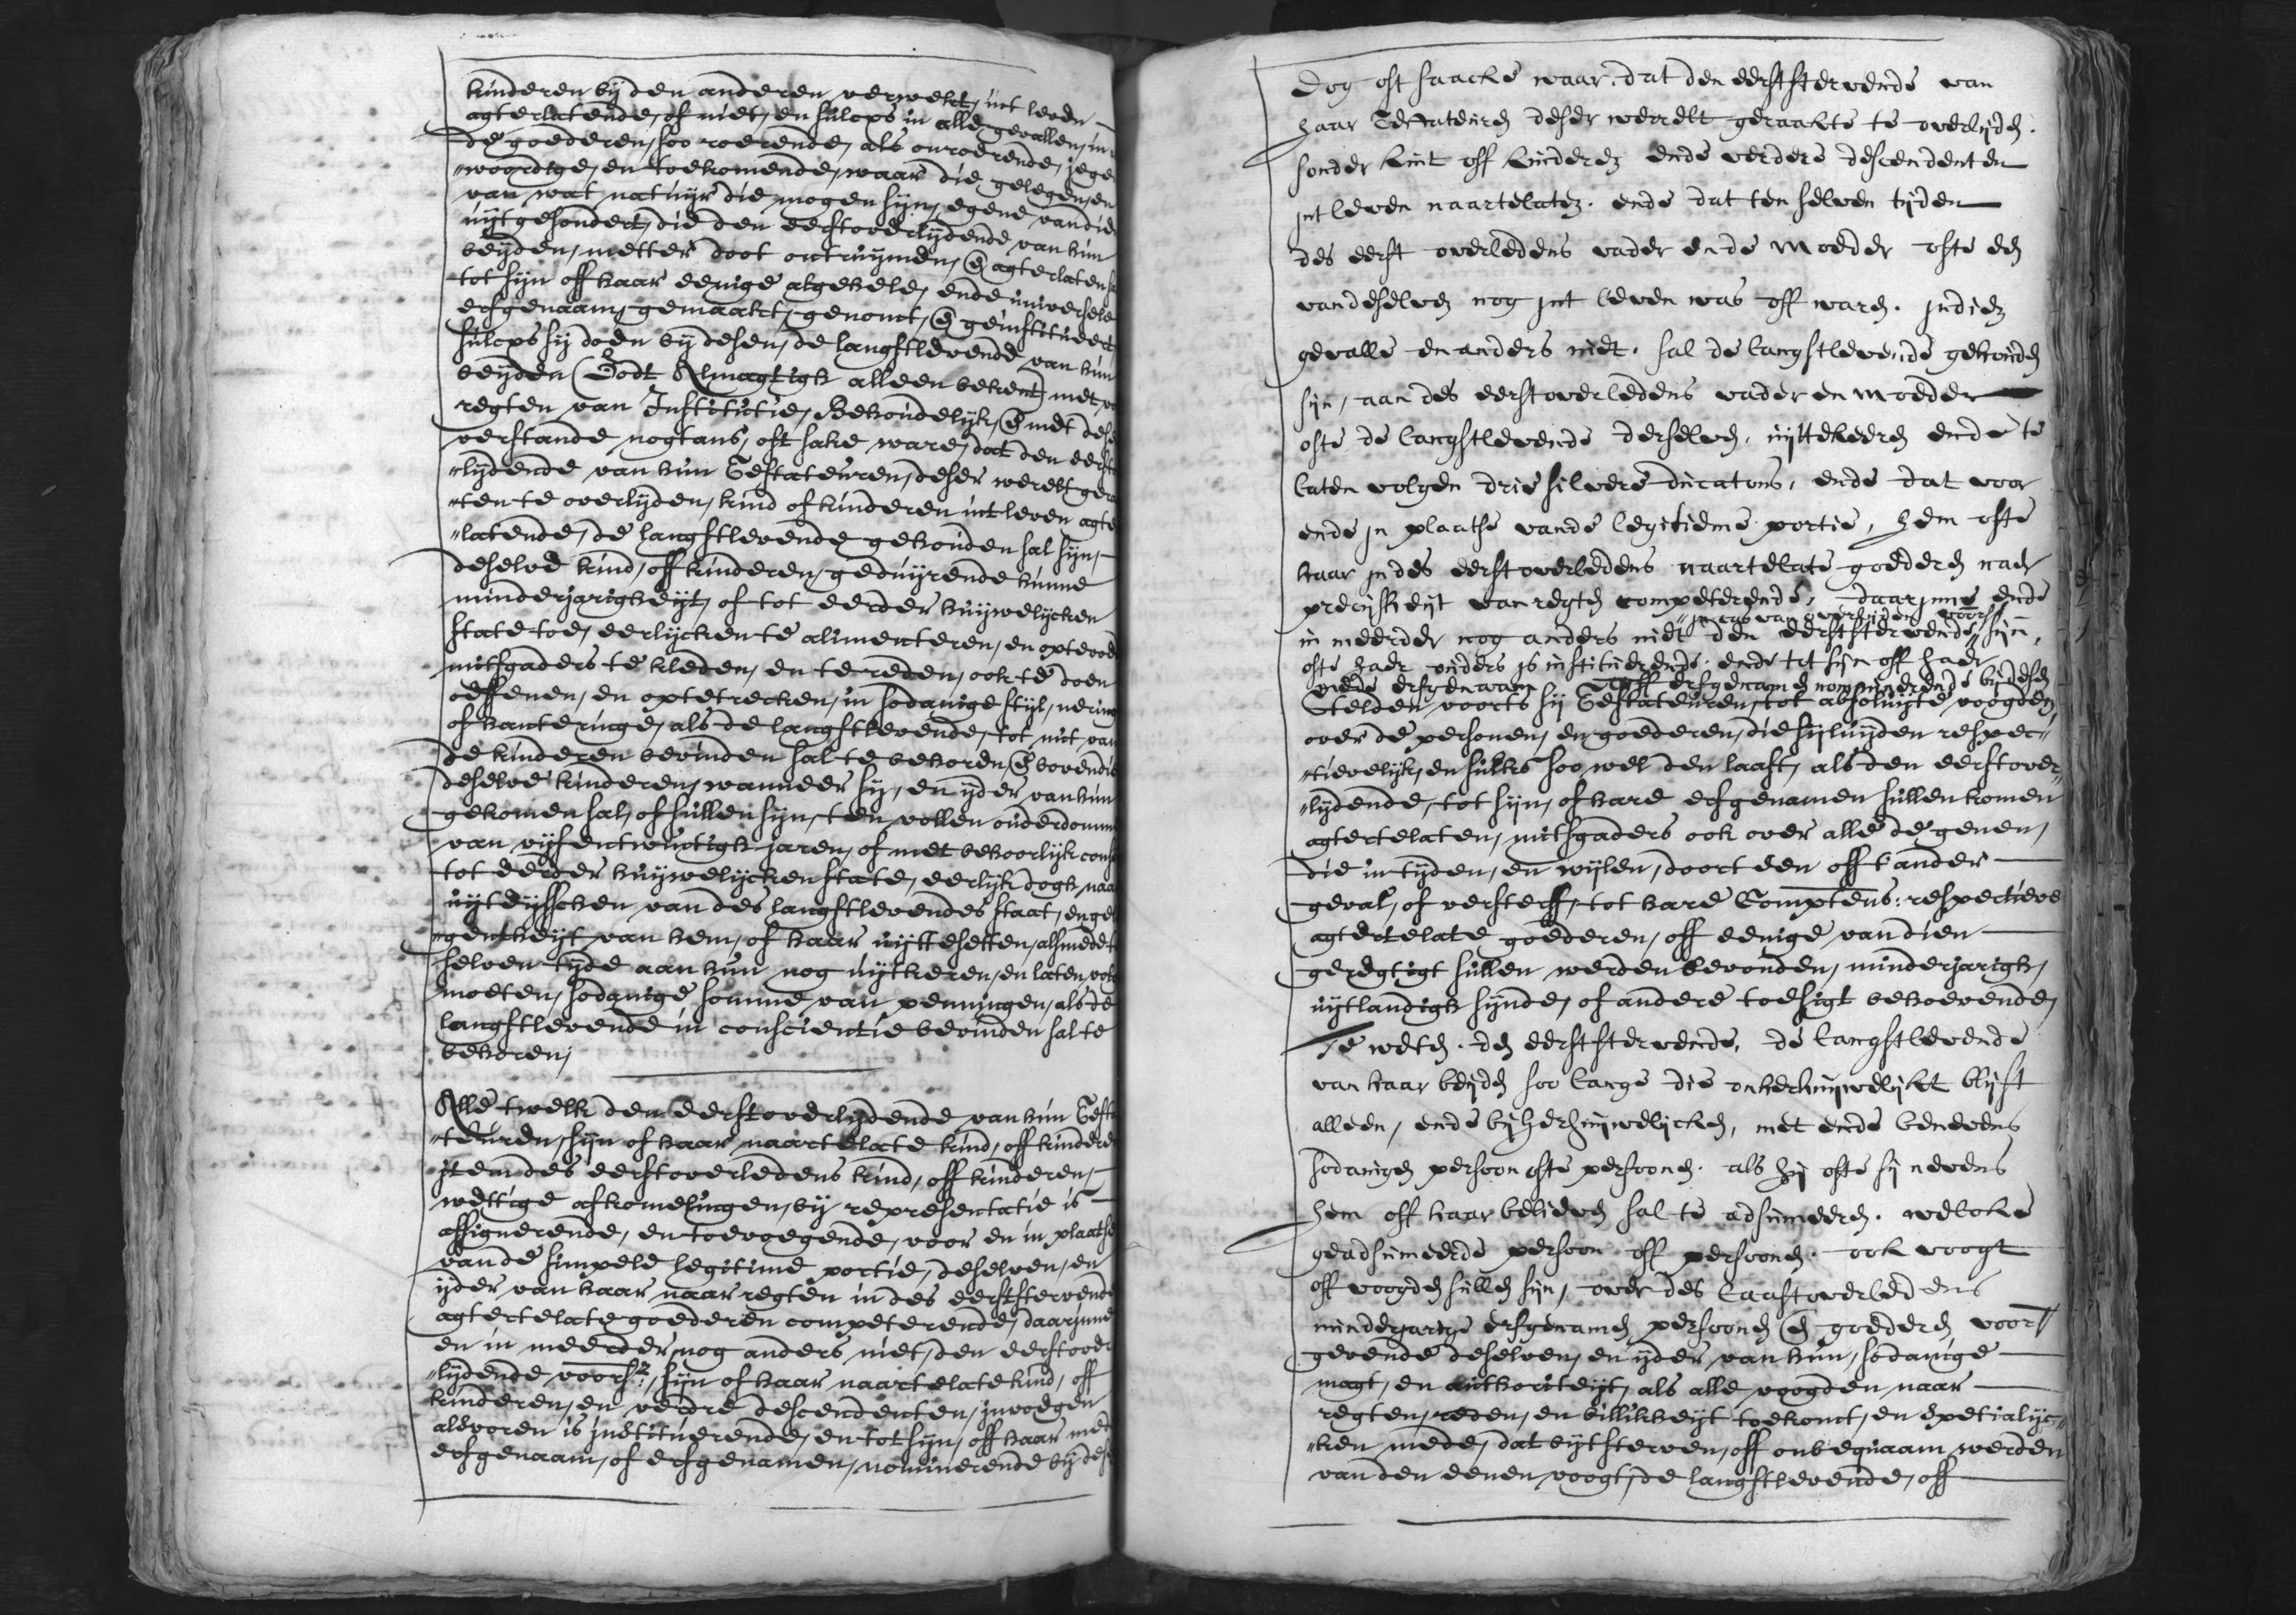 kinderen bij den anderen verwekt, int leven
agterlatende, of niet, en sulcx in alle gevallen, in
de goederen, soo roerende, als onroerende, jege
"woordige, en toekomende, waar die gelegen, en
van wat natuijr die mogen sijn, egene van dien
uijtgesondert, die den eerstoverlijdende van hun
beijden, metter doot ontruijmen, en agterlaten sa
tot sijn off haar eenige algehele, ende universele
erfgenaam, gemaakt, genomt, en geinstitueert
sulcx sij doen bij desen, de langstlevende van hun
beijden (Godt Almagtigh alleen bekent) met vo
regten van Institutie, Behoudelijk, en met dese
verstande nogtans, oft sake ware, dat den eersto
"lijdende van hun Testateuren, deser werelt gera
"ten te overlijden, kind of kinderen int leven agte
"latende, de langstlevende gehouden sal sijn,
deselve kind, off kinderen, geduijrende hunne
minderjarigheijt, of tot eerder huijwelijcken
state toe, eerlijcken te alimenteren, en optevoed
mitsgaders te kleden, en te reden, ook te doen
oeffenen, en optetrecken, in sodanige stijl, nering
of hanteringe, als de langstlevende, tot nut van
de kinderen bevinden sal te behoren, en bovendie
deselve kinderen, wanneer sij, en ijder van hun
gekomen sal, of sullen sijn, ten vollen ouderdomm
van vijfentwintigh jaren, of met behoorlijk conse
tot eerder huijwelijcken state, eerlijk dogh naa
uijteijsschen van des langstlevendes staat, en gel
"gentheijt van hem, of haar uijttesetten, alsmede t
selven tijde aan hun nog uijtkeren, en laten volg
moeten, sodanige somme van penningen, als de
langstlevende in conscientie bevinden sal te
behoren,
Alle twelk den eerstoverlijdende van hun Testa
"teuren, sijn of haar naartelate kind, off kindere
item des eerstoverledens kind, off kinderen,
wettige afkomelingen, bij representatie is
assignerende, en toevoegende, voor en in plaatse
van de simpele legitime portie, deselven, en
ijder van haar naar regten in des eerststervende
agtertelate goederen competerende, daarinne
en in meerder nog anders niet, den eerstover
"lijdende voors:, sijn of haar naartelate kind, off
kinderen, en verdre descendenten, invoegen
alsvoren is institueerende, en tot sijn, off haar med
erfgenaam, of erfgenamen, nominerende bij dese
Dog oft saacke waar, dat den eerststervende van
haar Testateuren deser werrelt geraakte te overlijden.
sonder kint off kinderen ende verdere descendenten
int leven naartelaten. ende dat ten selven tijden
des eerst overledens vader ende moeder ofte een
van deselven nog int leven was off waren. indien
gevalle en anders niet, sal de langstlevende gehouden
sijn, aan des eerstoverledens vader en moeder
ofte de langstlevende derselven, uijttekeeren ende te
laten volgen drie silvere ducatons, ende dat voor
ende in plaatse vande legitieme portie, hem ofte
haar in des eerstoverledens naartelate goederen naar
precijsheijt van regten competerende, daarinne ende
in cas van overlijden voors:
in meerder nog anders niet den eerststervende sijn,
ofte haar ouders is institueerende. ende tot sijn off haar
mede erfgenaam off erfgenamen nominerende bij desen
Stelden voorts sij Testateuren, tot absoluijte voogden
over de personen, en goederen, die sijluijden respec"
"tievelijk, en sulks soo wel den laast, als den eerstover"
"lijdende, tot sijn, of hare erfgenamen sullen komen
agtertelaten, mitsgaders ook over alle de genen,
die in tijden, en wijlen, doort een off t ander
geval, of versterff, tot hare Comptens: respective
agtertelate goederen, off eenige van dien
geregtigt sullen werden bevonden, minderjarigh,
uijtlandigh sijnde, of andere toesigt behoevende,
Te weten. den eerststervende, de langstlevende
van haar beijden soo lange die onherhuijwelijkt blijft
alleen, ende bij herhuijwelijcken, met ende benevens
sodanigen persoon ofte persoonen. als hij ofte sij nevens
hem off haar believen sal te adsumeeren. welcke
geadsumeerde persoon off persoonen. ook voogt
off voogden sullen sijn, over des laastoverledens
minderjarige erfgenamen, persoonen en goederen voor
gevende deselven, en ijder van hun, sodanige
magt, en authoriteijt, als alle voogden naar
regten, reden, en billikheijt toekomt, en spetialijc"
"ken mede, dat bijt sterven, off onbequaam werden
van den eenen voogt, de langstlevende, off